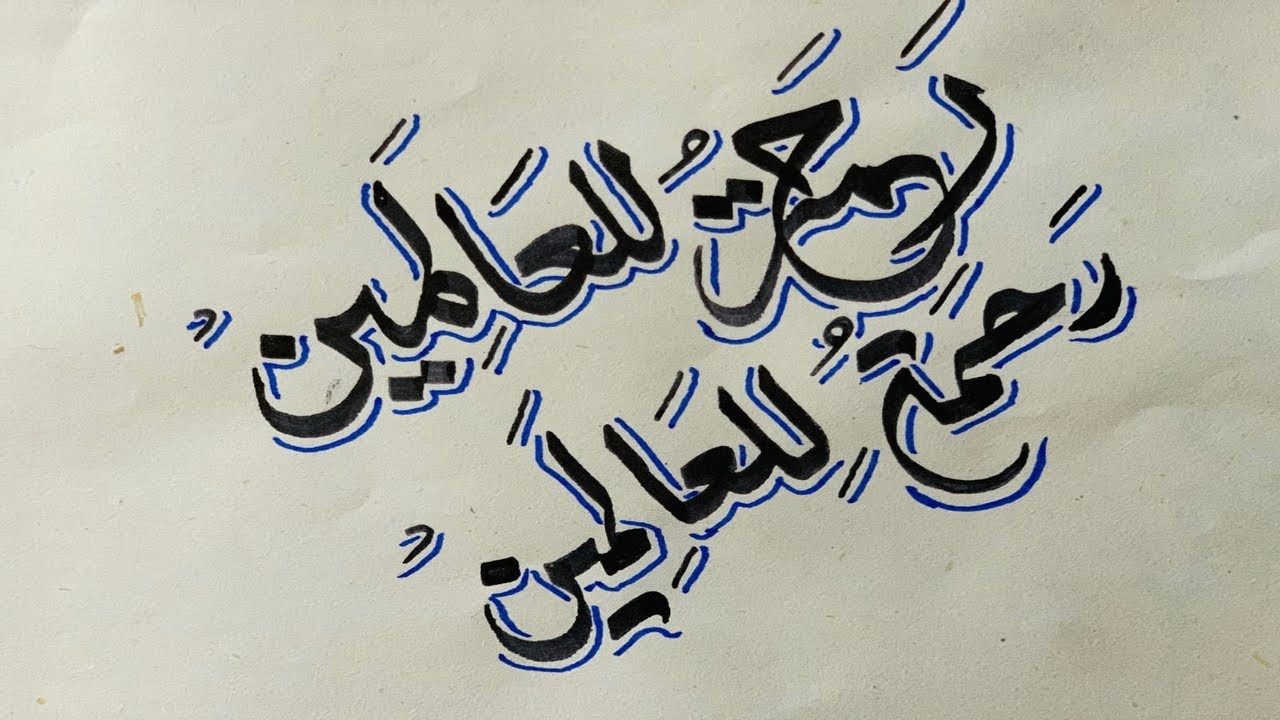 رَحمَةٌ للعَالَمِين
رَحمَةٌ لِلعَالَمِين